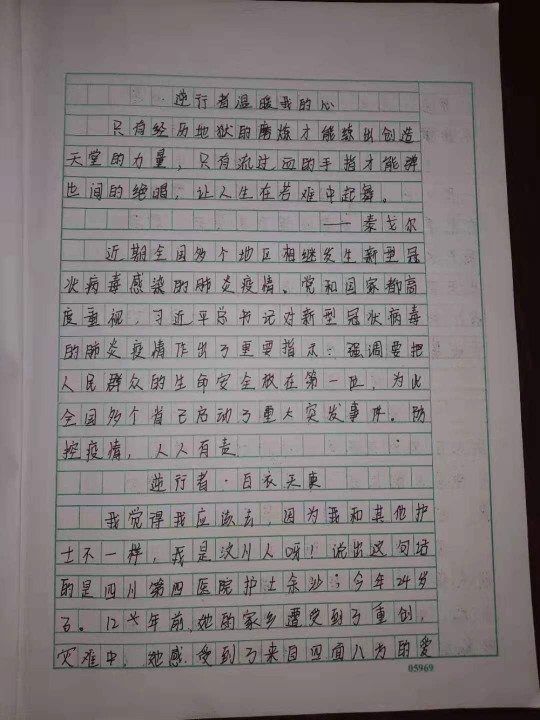 逆行者温暖我的心
只有经历地狱的磨炼才能练出创造
天堂的力量，只有流过血的手指才能弹
世间的绝唱，让人生在苦难中起舞。
——泰戈尔
近期全国多个地区相继发生新型冠
状病毒感染的肺炎疫情、党和国家都高
度重视，习近平总书记对新型冠状病毒
的肺炎疫情作出了重要指示：强调要把
人民群众的生命安全放在第一位，为此
全国多个省已启动了重大突发事件。防
控疫情，人人有责
逆行者·白衣天使
我觉得我应该去，因为我和其他护
士不一样，我是汶川人呀！说出这句话
的是四川第四医院护士佘沙；今年24岁
了。12年前，她的家乡遭受到了重创，
灾难中，她感受到了来自四面八方的爱
05969